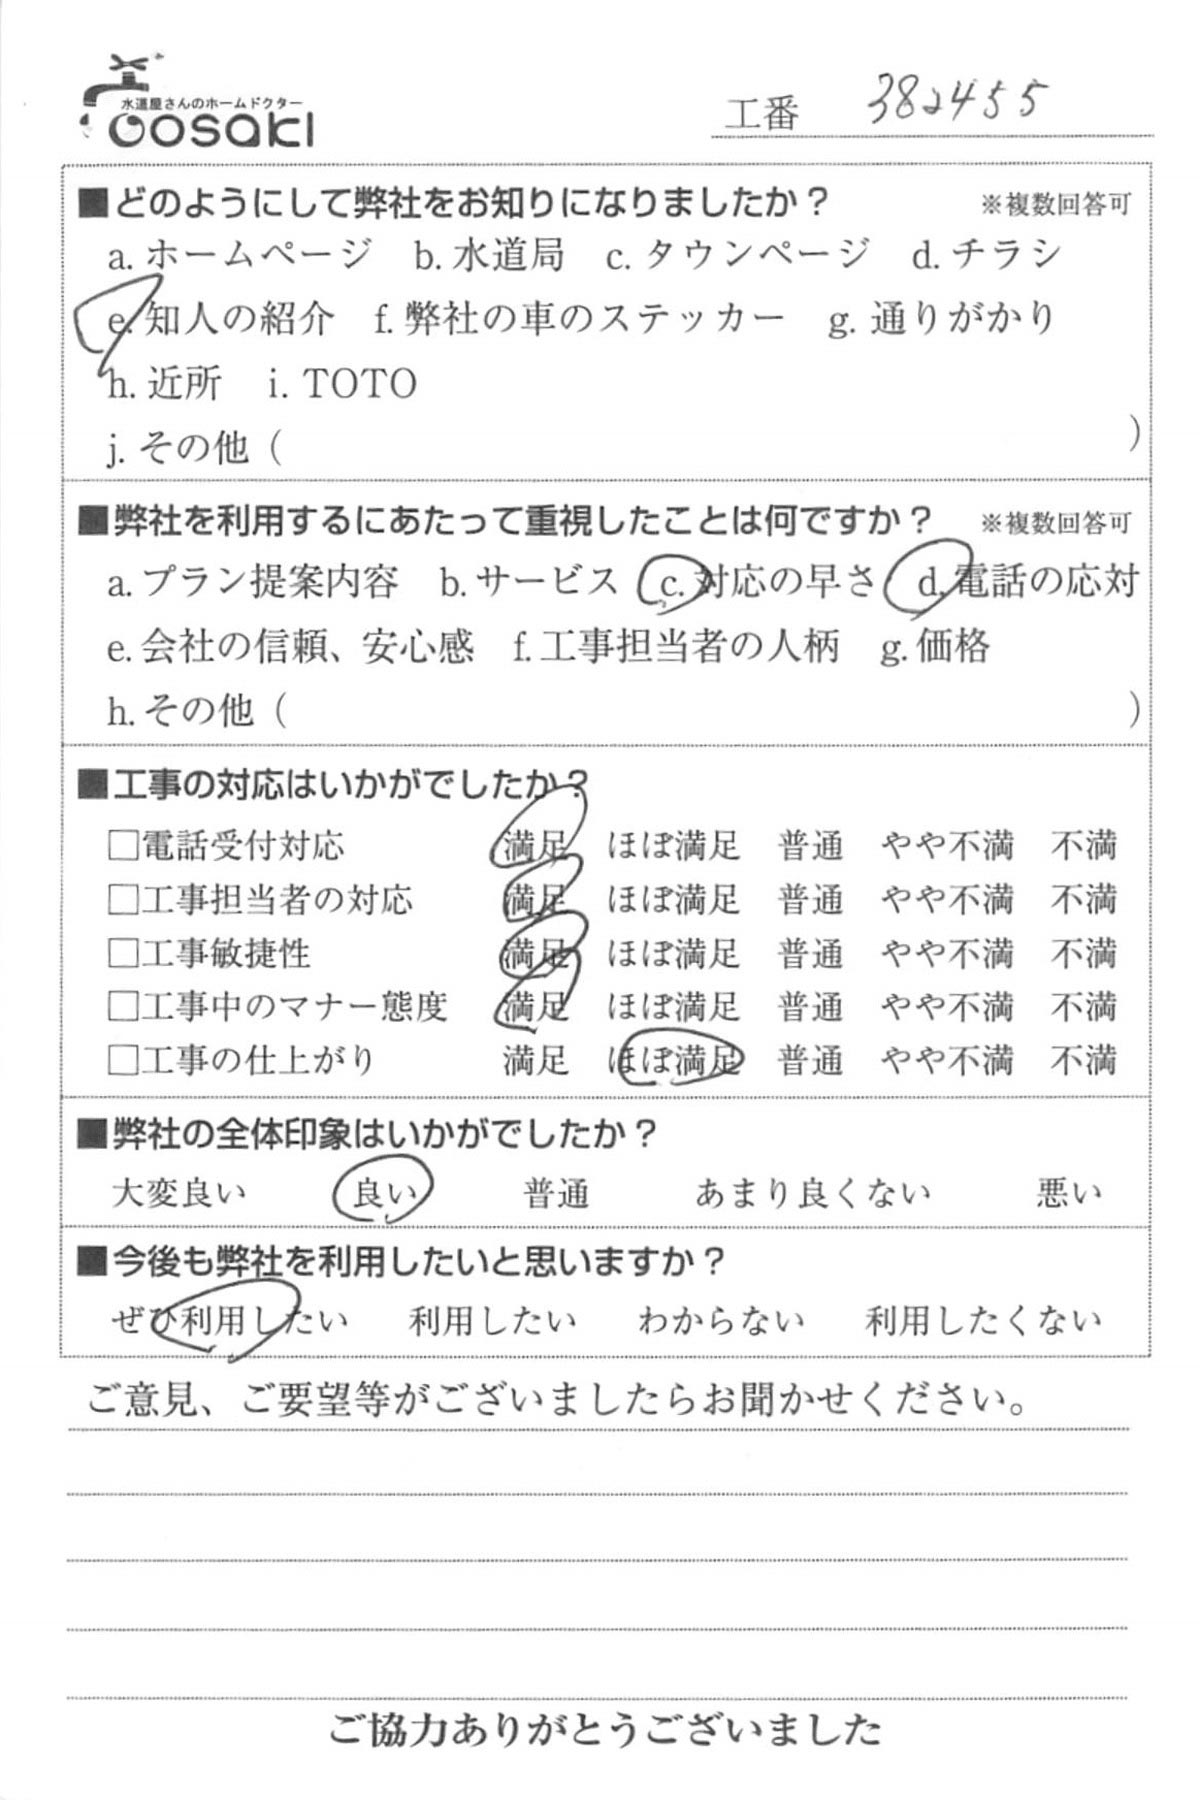 水道屋さんのホームドクター
coosaki
工番 382455
■どのようにして弊社をお知りになりましたか？ ※複数回答可
a. ホームページ b. 水道局 c. タウンページ d. チラシ
e. 知人の紹介 f. 弊社の車のステッカー g. 通りがかり
h. 近所 i. TOTO
j. その他（ ）
■弊社を利用するにあたって重視したことは何ですか？ ※複数回答可
a. プラン提案内容 b. サービス c. 対応の早さ d. 電話の応対
e. 会社の信頼、安心感 f. 工事担当者の人柄 g. 価格
h. その他（ ）
■工事の対応はいかがでしたか？
□電話受付対応 満足 ほぼ満足 普通 やや不満 不満
□工事担当者の対応 満足 ほぼ満足 普通 やや不満 不満
□工事敏捷性 満足 ほぼ満足 普通 やや不満 不満
□工事中のマナー態度 満足 ほぼ満足 普通 やや不満 不満
□工事の仕上がり 満足 ほぼ満足 普通 やや不満 不満
■弊社の全体印象はいかがでしたか？
大変良い 良い 普通 あまり良くない 悪い
■今後も弊社を利用したいと思いますか？
ぜひ利用したい 利用したい わからない 利用したくない
ご意見、ご要望等がございましたらお聞かせください。
ご協力ありがとうございました